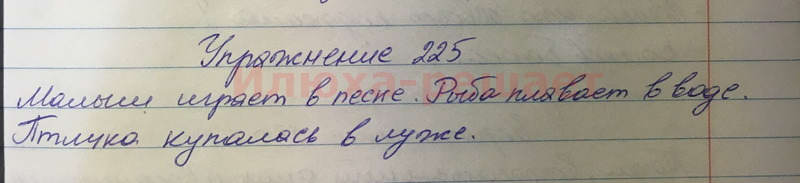 Упражнение 225
Илюха-решает
Малыш играет в песке. Рыба плавает в воде.
Птичка купалась в луже.